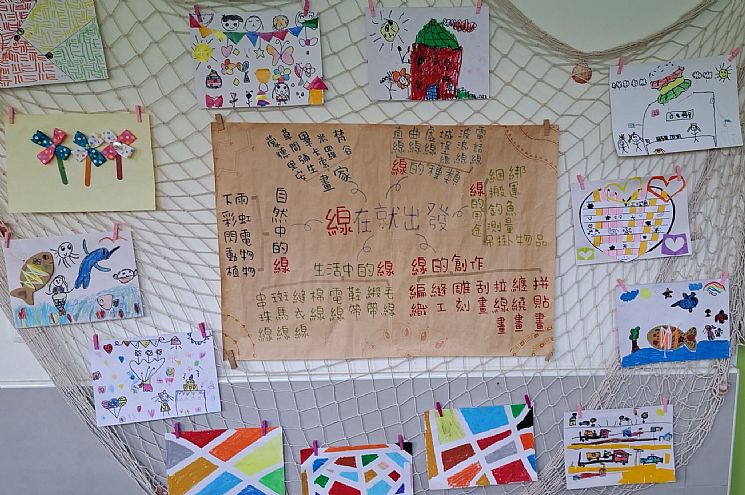 線在就出發
畫家
蒙德里安
草間彌生
畢卡索
米羅
梵谷
線的種類
直線
曲線
虛線
城堡線
波浪線
電話線
線的用途
綑綁
搬運
釣魚
測量
吊掛物品
自然中的線
下雨
彩虹
閃電
動物
植物
生活中的線
串珠線
斑馬線
縫衣線
棉線
電線
鞋帶
緞帶
毛線
線的創作
編織
縫工
雕刻
刮畫
拉線畫
纏繞畫
拼貼畫